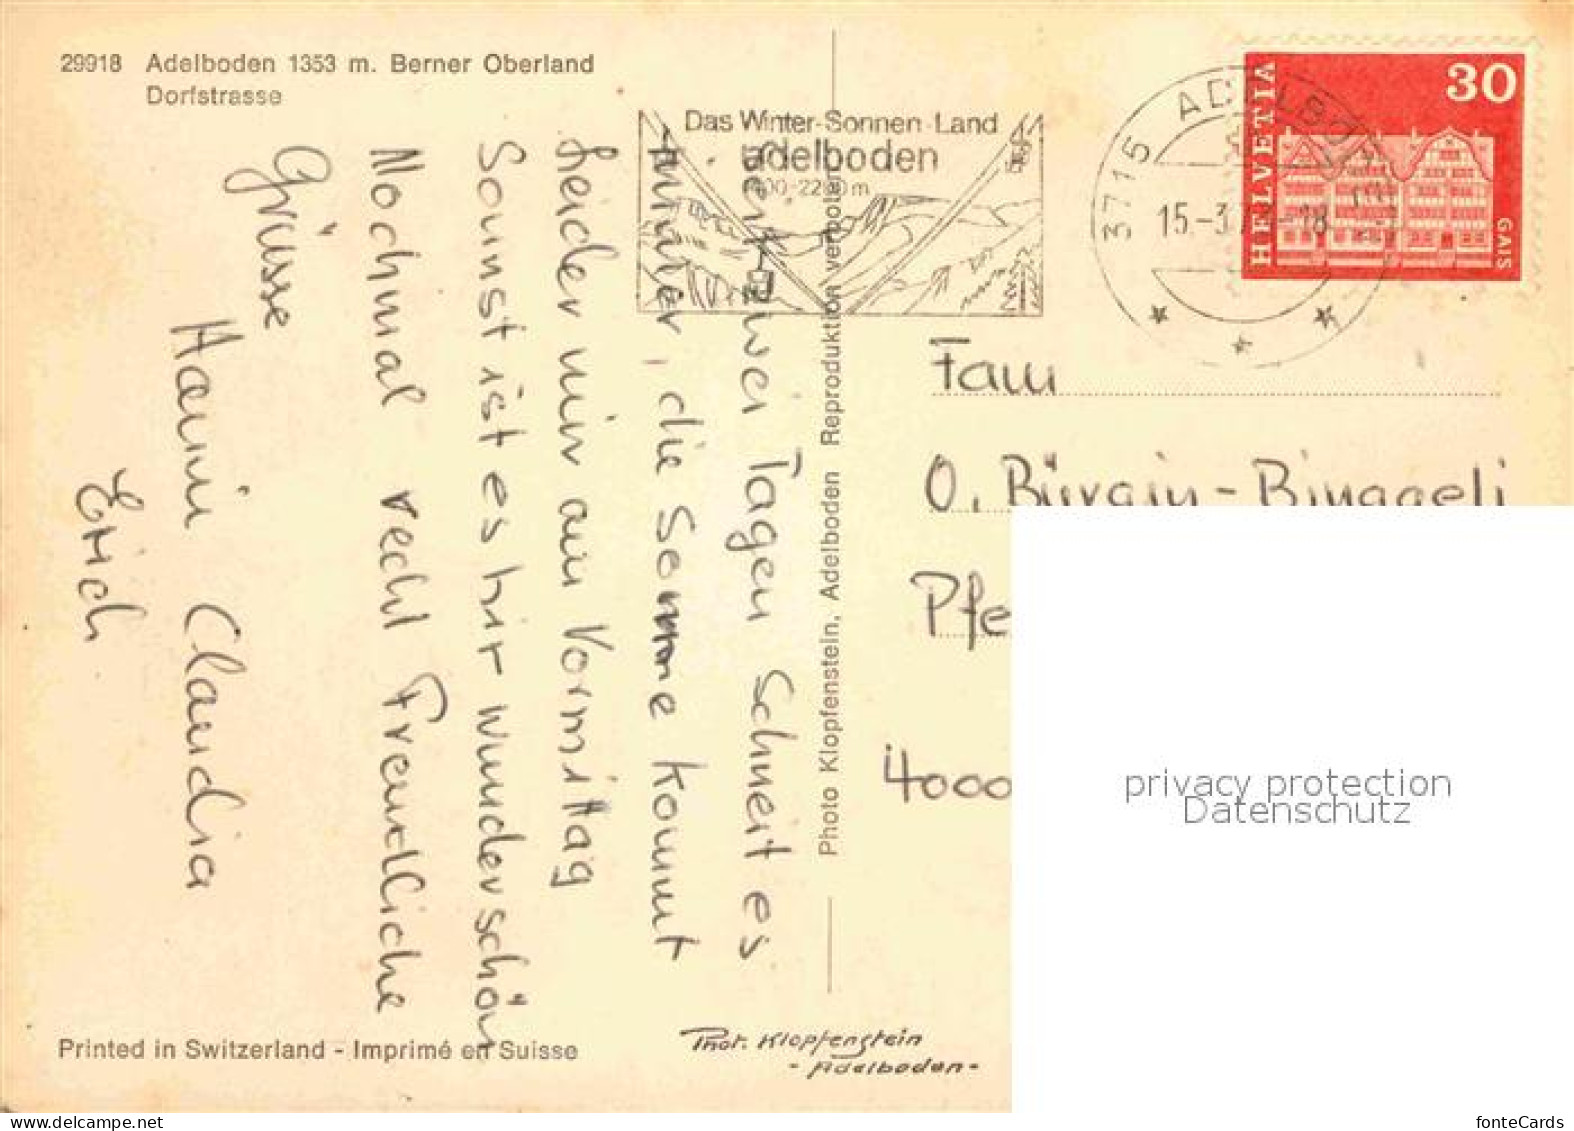 29918 Adelboden 1353 m. Berner Oberland
Dorfstrasse
Das Winter-Sonnen-Land
adelboden
2200 m
3715 ADELBODEN
15.-3. -18
HELVETIA
30
GAIS
Seit zwei Tagen Schneit es
immer, die Sonne kommt
Leider nur am Vormittag
Sonnst ist es hir wunderschön
Nochmal recht Freundliche
Grüsse
Hanni Claudia
Erich
Photo Klopfenstein, Adelboden Reproduktion verboten
Fam
O. Bürgin - Binggeli
Pfe
4000
privacy protection
Datenschutz
Printed in Switzerland - Imprimé en Suisse
Phot. Klopfenstein
- Adelboden -
www.ansichtskartenversand.com
fonteCards